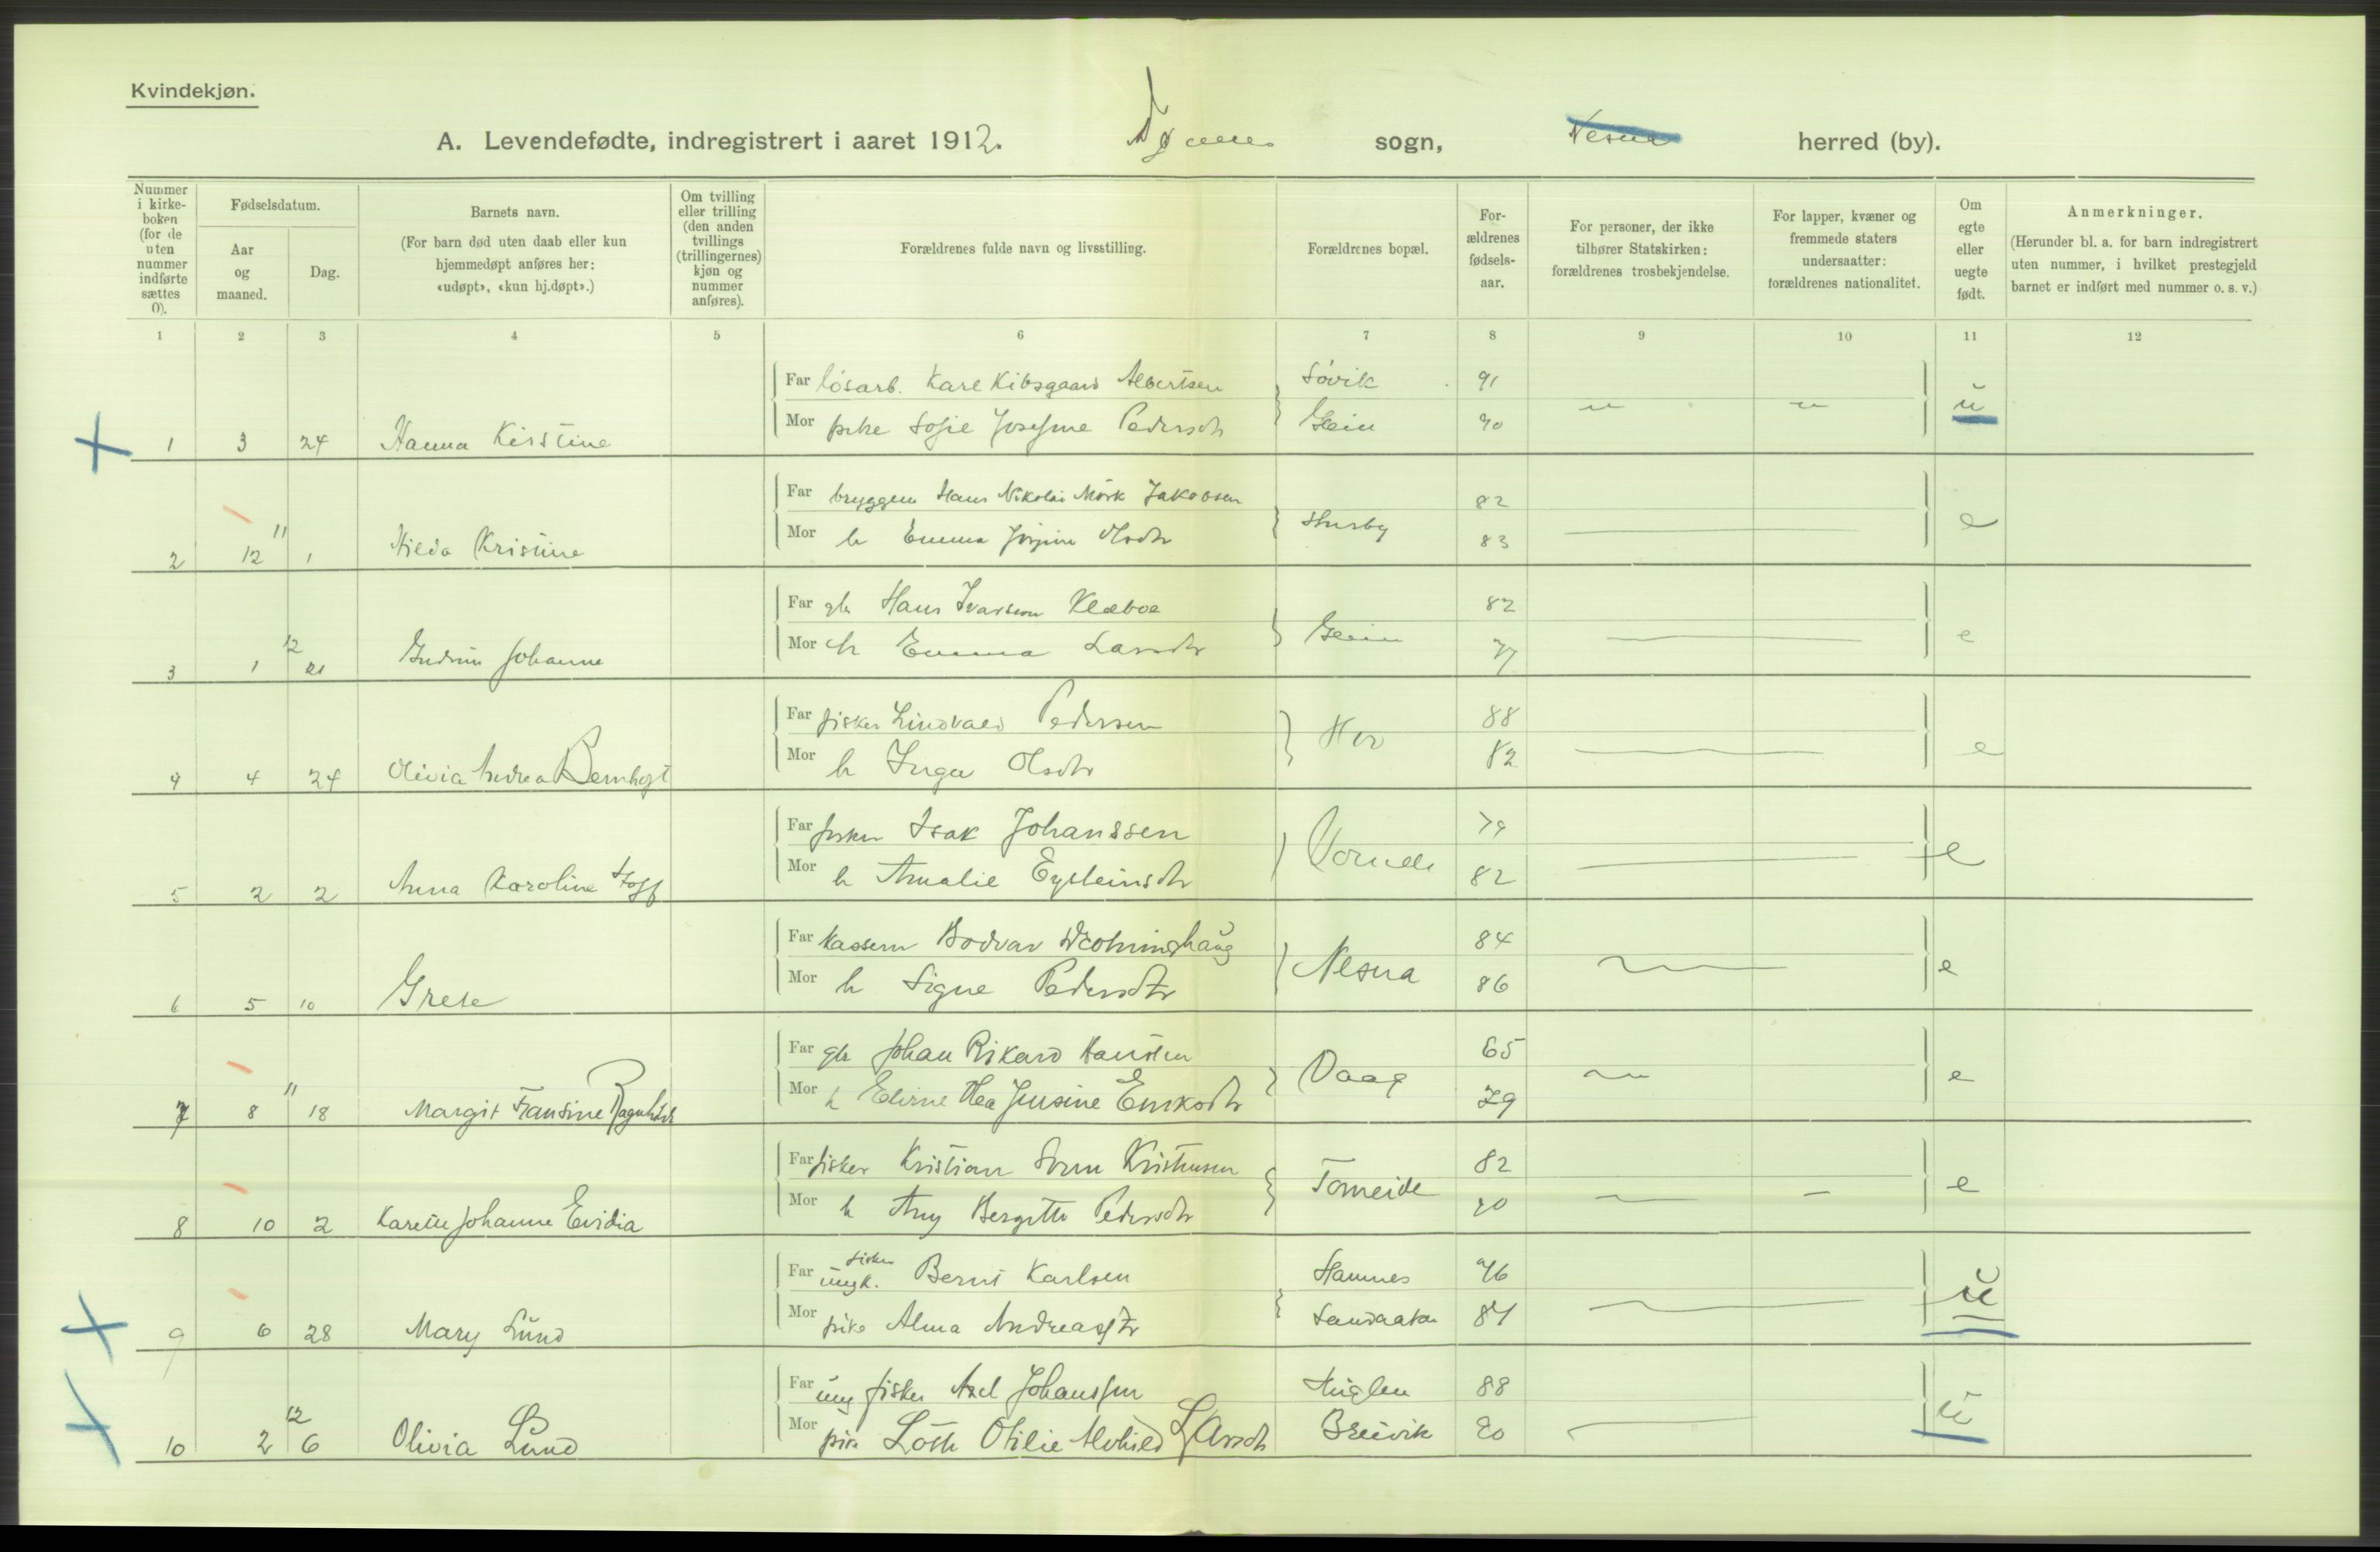 Kvindekjøn.
A. Levendefødte, indregistrert i aaret 1912. sogn, Nesna herred (by).
Nummer i kirke-boken (for de uten nummer indførte sættes 0).
Fødselsdatum.
Aar og maaned.
Dag.
Barnets navn.
(For barn død uten daab eller kun hjemmedøpt anføres her: «udøpt», «kun hj.døpt».)
Om tvilling eller trilling (den anden tvillings (trillingernes) kjøn og nummer anføres).
Forældrenes fulde navn og livsstilling.
Forældrenes bopæl.
For-ældrenes fødsels-aar.
For personer, der ikke tilhører Statskirken: forældrenes trosbekjendelse.
For lapper, kvæner og fremmede staters undersaatter: forældrenes nationalitet.
Om egte eller uegte født.
Anmerkninger.
(Herunder bl. a. for barn indregistrert uten nummer, i hvilket prestegjeld barnet er indført med nummer o. s. v.)
1 2 3 4 5 6 7 8 9 10 11 12
Far løsarb. Karl Kibsgaard Albertsen Søvik 91
Mor pike Sofie Josefine Pedersdtr 90 " " u
1 3 24 Hanna Kirstine
Far Hans Nikolai Mørk Jakobsen 82
Mor h Emma Olsdtr Husby 83 e
2 12 11 1 Hilda Kristine
Far gb Hans Ivarsen Klæboe 82
Mor h Emma Larsdtr 77 e
3 1 12 21 Gudrun Johanne
Far fisker Lindvald Pedersen 88
Mor h Inga Olsdtr 82 e
4 4 24 Olivia Andrea Bernhoft
Far fisker Isak Johanssen 79
Mor h Amalie Eysteinsdtr 82 e
5 2 2 Anna Karoline Hoff
Far Bodvar 84
Mor h Signe Pedersdtr Nesna 86 e
6 5 10 Grete
Far gb Johan Rikard Hansen 65
Mor h Jensine Vaag 79 e
7 8 11 18 Margit Fransine Ragnhild
Far fisker Kristian Kristensen 82
Mor h Any Bergitte Pedersdtr Tomeide 90 e
8 10 2 Johanne Evidia
Far fisker ungk. Karlsen Hamnes 76
Mor pike Alma Andreasdtr 84 u
9 6 28 Mary Lund
Far ung fisker Axel Johanssen Huglen 88
Mor pike Otilie Alvhild Larsdtr Breivik 90 u
10 2 12 6 Olivia Lund